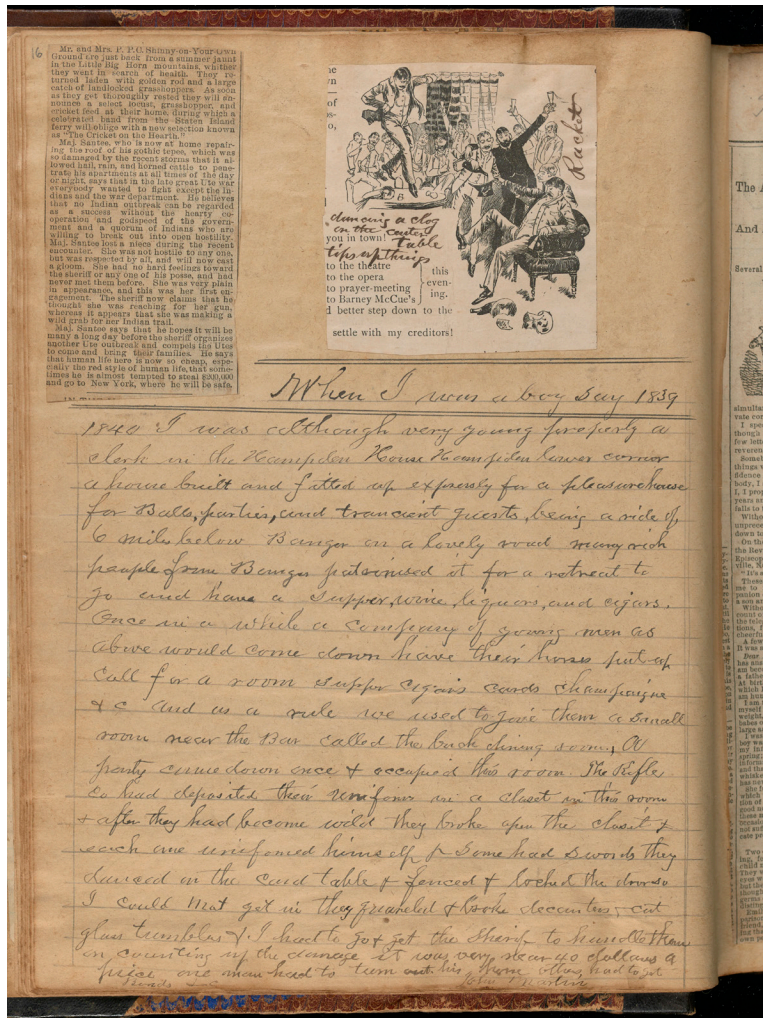 16
Mr. and Mrs. P. P. C. Shinny-on-Your-Own
Ground are just back from a summer jaunt
in the Little Big Horn mountains, whither
they went in search of health. They re-
turned laden with golden rod and a large
catch of landlocked grasshoppers. As soon
as they get thoroughly rested they will an-
nounce a select locust, grasshopper, and
cricket feed at their home, during which a
celebrated band from the Staten Island
ferry will oblige with a new selection known
as "The Cricket on the Hearth."
Maj. Santee, who is now at home repair-
ing the roof of his gothic tepee, which was
so damaged by the recent storms that it al-
lowed hail, rain, and horned cattle to pene-
trate his apartments at all times of the day
or night, says that in the late great Ute war
everybody wanted to fight except the In-
dians and the war department. He believes
that no Indian outbreak can be regarded
as a success without the hearty co-
operation and godspeed of the govern-
ment and a quorum of Indians who are
willing to break out into open hostility.
Maj. Santee lost a niece during the recent
encounter. She was not hostile to any one,
but was respected by all, and will now cast
a gloom. She had no hard feelings toward
the sheriff or any one of his posse, and had
never met them before. She was very plain
in appearance, and this was her first en-
gagement. The sheriff now claims that he
thought she was reaching for her gun,
whereas it appears that she was making a
wild grab for her Indian trail.
Maj. Santee says that he hopes it will be
many a long day before the sheriff organizes
another Ute outbreak and compels the Utes
to come and bring their families. He says
that human life here is now so cheap, espe-
cially the red style of human life, that some-
times he is almost tempted to steal $200,000
and go to New York, where he will be safe.
Racket
dancing a clog
on the center
table
you in town!
tips up things
to the theatre
to the opera
to prayer-meeting
to Barney McCue's
this
even-
ing.
d better step down to the
settle with my creditors!
When I was a boy say 1839
1840 I was although very young properly a
clerk in the Hampden House Hampden lower corner
a house built and fitted up expressly for a pleasurehouse
for Balls, parties, and trancient guests, being a ride of
6 miles below Bangor on a lovely road many rich
people from Bangor patronised it for a retreat to
go and have a supper, wine, liquors, and cigars.
Once in a while a company of young men as
above would come down have their horses put up
call for a room supper cigars cards champaigne
&c and as a rule we used to give them a small
room near the Bar called the back dining room, A
party came down once & occupied this room. The Rifle
Co had deposited their uniform in a closet in this room
& after they had become wild they broke open the closet &
each one uniformed himself & some had swords they
danced on the card table & fenced & locked the door so
I could not get in they quareled & broke decanters, cut
glass tumblers &. I had to go & get the Sherif to handle them
on counting up the damage it was very near 40 dollars a
piece one man had to turn out his horse others had to get
Bonds &c John Martin
The A
And
Several